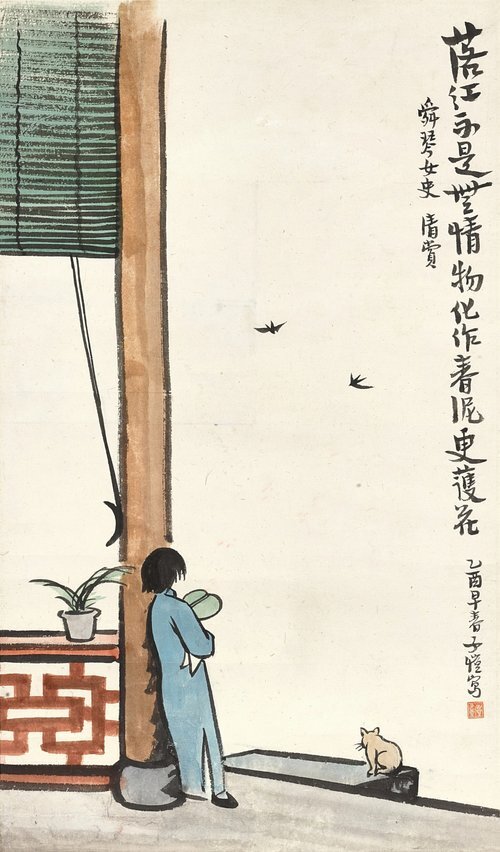 落紅不是無情物化作春泥更護花
乙酉早春子愷寫
舜琴女史 清賞